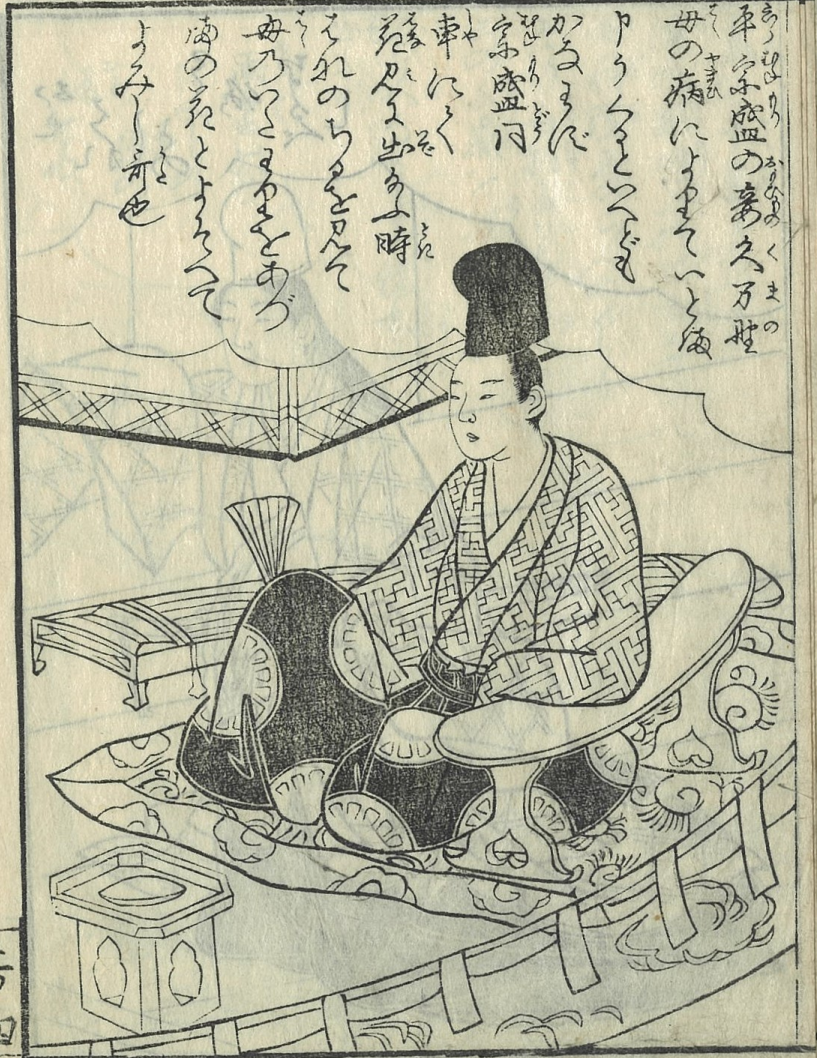 平宗盛の妾久万野
母の病によりていとま
申うくるといへども
かなはず
宗盛同
車にて
花見に出給ふ時
はなのちるを見て
母乃いたはりをあづ
まの花とよそへて
よみし哥也